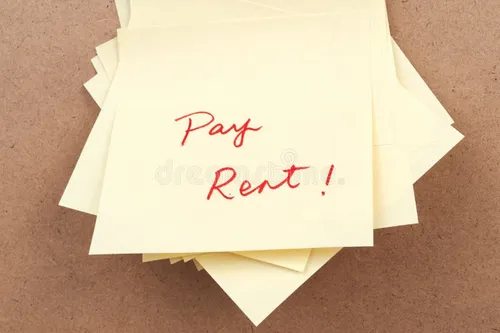 Pay
Rent!
dreamstime